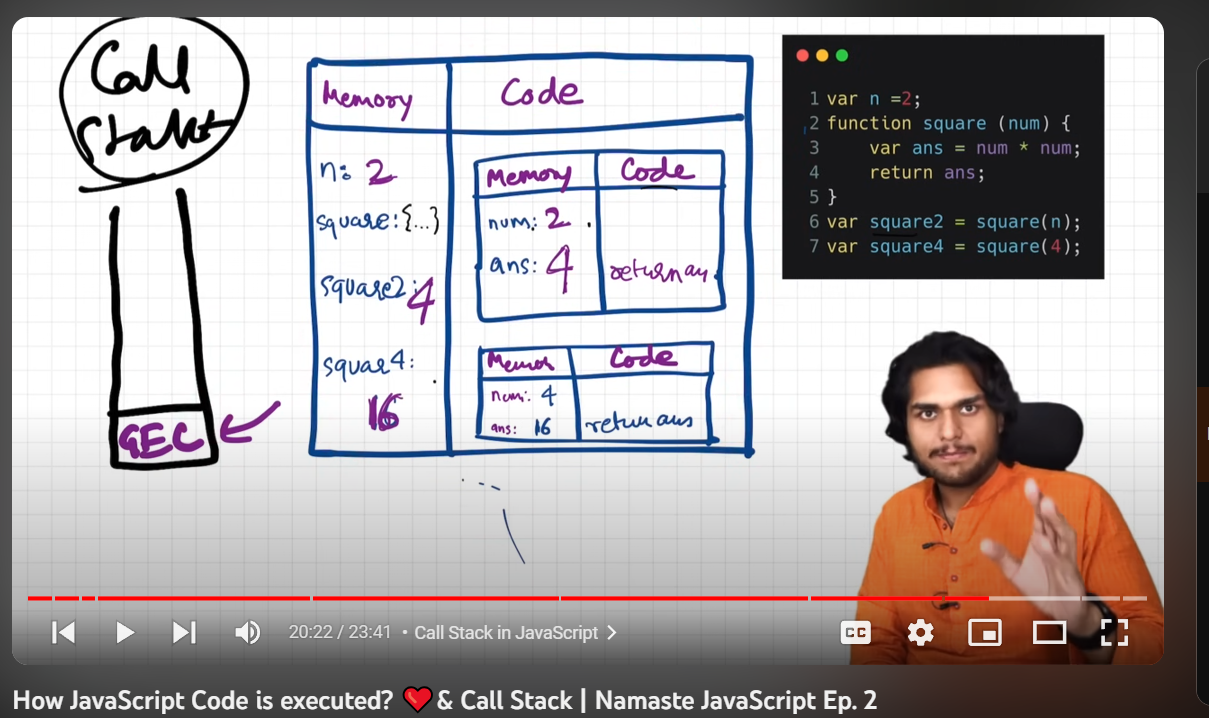 Call
Stakt
GEC
Memory
Code
n: 2
square: {...}
square2: 4
squar4:
16
Memory
Code
num: 2
ans: 4
return an
Code
num: 4
ans: 16
return ans
1 var n =2;
2 function square (num) {
3 var ans = num * num;
4 return ans;
5 }
6 var square2 = square(n);
7 var square4 = square(4);
20:22 / 23:41 • Call Stack in JavaScript >
CC
How JavaScript Code is executed? ❤️& Call Stack | Namaste JavaScript Ep. 2